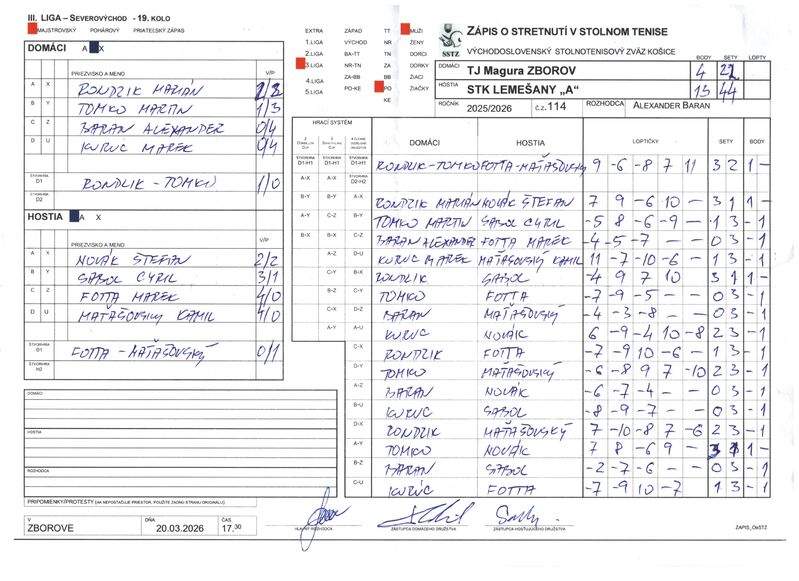 III. LIGA – SEVEROVÝCHOD - 19. KOLO
MAJSTROVSKÝ POHÁROVÝ PRIATEĽSKÝ ZÁPAS
DOMÁCI A X
PRIEZVISKO A MENO V/P
A X RONDZIK MARIÁN 2/2
B Y TOMKO MARTIN 1/3
C Z BARAN ALEXANDER 0/4
D U KURUC MAREK 0/4
ŠTVORHRA D1 RONDZIK - TOMKO 1/0
ŠTVORHRA D2
HOSTIA A X
PRIEZVISKO A MENO V/P
A X NOVÁK ŠTEFAN 2/2
B Y SABOL CYRIL 3/1
C Z FOTTA MAREK 4/0
D U MATAŠOVSKÝ KAMIL 4/0
ŠTVORHRA D1 FOTTA - MATAŠOVSKÝ 0/1
ŠTVORHRA H2
DOMÁCI
HOSTIA
ROZHODCA
PRIPOMIENKY/PROTESTY (AK NEPOSTAČUJE PRIESTOR, POUŽITE ZADNÚ STRANU ORIGINÁLU)
V ZBOROVE DŇA 20.03.2026 ČAS 17.30
EXTRA ZÁPAD TT MUŽI
1.LIGA VÝCHOD NR ŽENY
2.LIGA BA-TT TN DORCI
3.LIGA NR-TN ZA DORKY
4.LIGA ZA-BB BB ŽIACI
5.LIGA PO-KE PO ŽIAČKY
KE
SSTZ
ZÁPIS O STRETNUTÍ V STOLNOM TENISE
VÝCHODOSLOVENSKÝ STOLNOTENISOVÝ ZVÄZ KOŠICE
BODY SETY LOPTY
DOMÁCI TJ Magura ZBOROV 4 22
HOSTIA STK LEMEŠANY „A" 13 44
ROČNÍK 2025/2026 č.z. 114 ROZHODCA ALEXANDER BARAN
HRACÍ SYSTÉM
DOMÁCI HOSTIA LOPTIČKY SETY BODY
ŠTVORHRA D1-H1 ŠTVORHRA D1-H1 ŠTVORHRA D1-H1 RONDZIK-TOMKO FOTTA-MATAŠOVSKÝ 9 -6 -8 7 11 3 2 1 -
A-X A-X ŠTVORHRA D2-H2
B-Y B-Y A-X RONDZIK MARIÁN NOVÁK ŠTEFAN 7 9 -6 10 - 3 1 1 -
A-Y C-Z B-Y TOMKO MARTIN SABOL CYRIL -5 8 -6 -9 - 1 3 - 1
B-X B-X C-Z BARAN ALEXANDER FOTTA MAREK -4 -5 -7 - - 0 3 - 1
A-Z D-U KURUC MAREK MATAŠOVSKÝ KAMIL 11 -7 -10 -6 - 1 3 - 1
C-Y B-X RONDZIK SABOL -4 9 7 10 3 1 1 -
B-Z C-Y TOMKO FOTTA -7 -9 -5 - - 0 3 - 1
C-X D-Z BARAN MATAŠOVSKÝ -4 -3 -8 - - 0 3 - 1
A-Y A-U KURUC NOVÁK 6 -9 -4 10 -8 2 3 - 1
C-X RONDZIK FOTTA -7 -9 10 -6 - 1 3 - 1
D-Y TOMKO MATAŠOVSKÝ -6 -8 9 7 -10 2 3 - 1
A-Z BARAN NOVÁK -6 -7 -4 - - 0 3 - 1
B-U KURUC SABOL -8 -9 -7 - - 0 3 - 1
D-X RONDZIK MATAŠOVSKÝ 7 -10 -8 7 -6 2 3 - 1
A-Y TOMKO NOVÁK 7 8 -6 9 - 3 1 1 -
B-Z BARAN SABOL -2 -7 -6 - - 0 3 - 1
C-U KURUC FOTTA -7 -9 10 -7 1 3 - 1
HLAVNÝ ROZHODCA ZÁSTUPCA DOMÁCEHO DRUŽSTVA ZÁSTUPCA HOSŤUJÚCEHO DRUŽSTVA
ZAPIS_OeSTZ